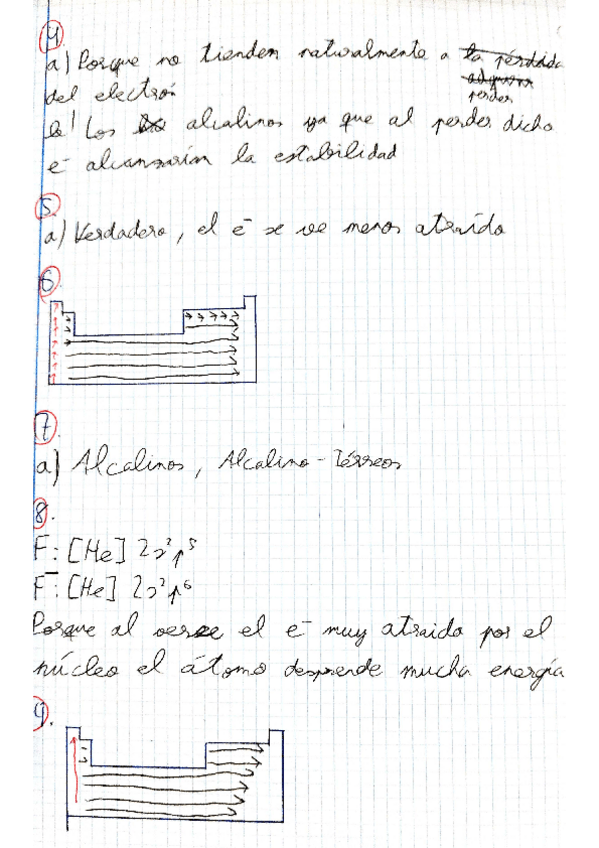 4
a) Porque no tienden naturalmente a ~~la pérdida~~
~~adquirir~~
perder
del electrón
b) Los alcalinos ya que al perder dicho
e⁻ alcanzarían la estabilidad
5.
a) Verdadero, el e⁻ se ve menos atraído
6.
7.
a) Alcalinos, Alcalino-Térreos
8.
F: [He] 2s²p⁵
F⁻: [He] 2s²p⁶
Porque al verse el e⁻ muy atraido por el
núcleo el átomo desprende mucha energía
9.